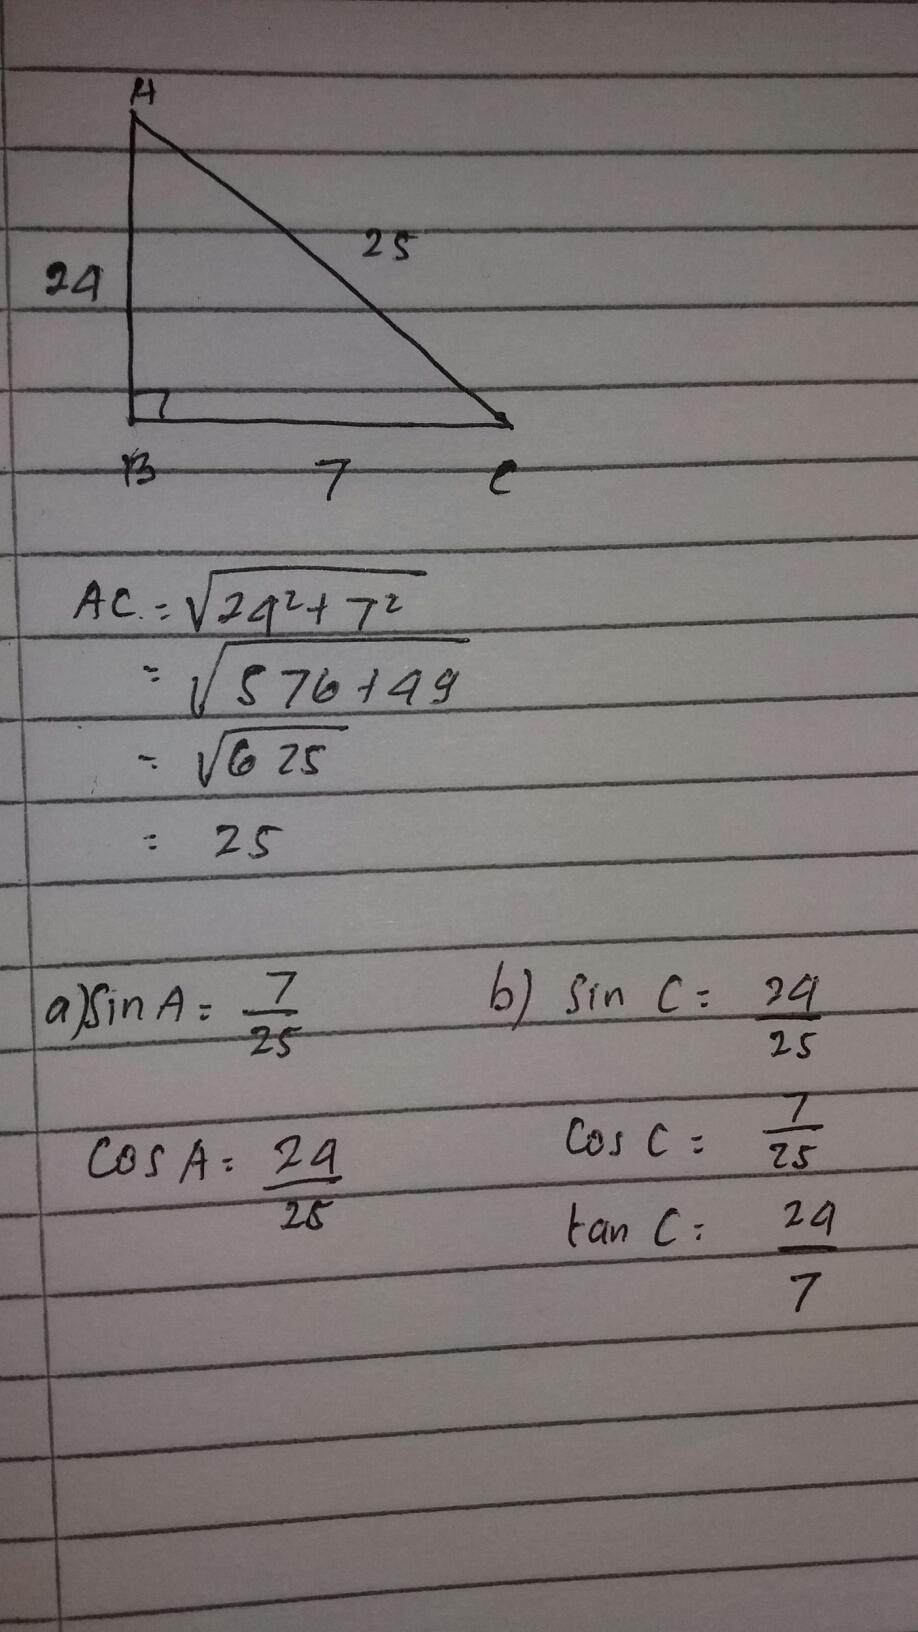 A
25
24
B 7 C
AC = √24² + 7²
= √576 + 49
= √625
= 25
a) Sin A = 7/25 b) Sin C = 24/25
Cos A = 24/25 Cos C = 7/25
tan C = 24/7